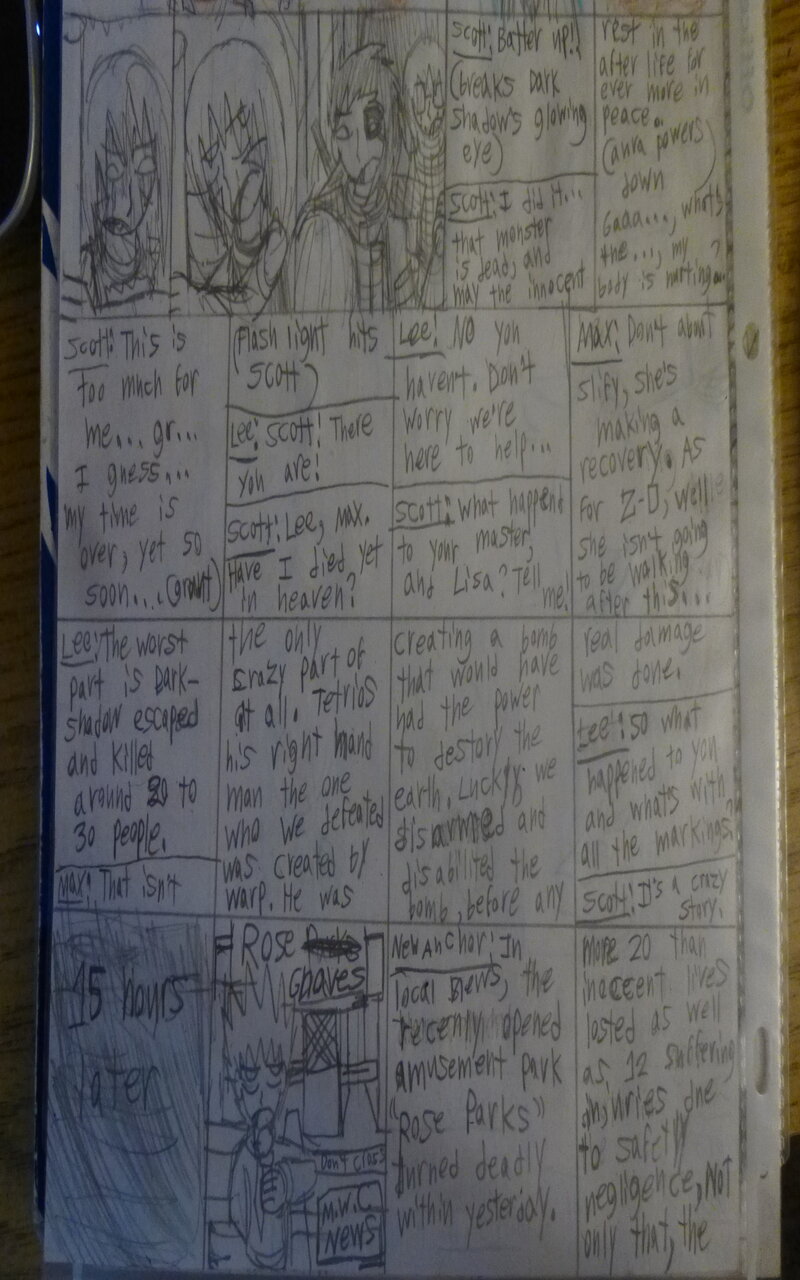 Scott: Batter up!!
(breaks Dark
shadow's glowing
eye)
Scott: I did it...
that monster
is dead, and
may the innocent
rest in the
after life for
ever more in
peace.
(aura powers
down)
Gaaa..., what's
the..., my
body is hurting...
Scott: This is
too much for
me... gr...
I guess...
my time is
over, yet so
soon... (grunt)
(Flash light hits
Scott)
Lee: Scott! There
you are!
Scott: Lee, Max.
Have I died yet
in heaven?
Lee: No you
haven't. Don't
worry we're
here to help...
Scott: What happend
to your master,
and Lisa? Tell
me!
Max: Don't about
slify, she's
making a
recovery. As
for Z-D, well
she isn't going
to be walking
after this...
Lee: The worst
part is Dark-
shadow escaped
and killed
around 20 to
30 people.
Max: That isn't
the only
crazy part of
at all. Tetrios
his right hand
man the one
who we defeated
was created by
warp. He was
creating a bomb
that would have
had the power
to destory the
earth. Luckly we
disarmed and
disabilited the
bomb, before any
real damage
was done.
Lee: So what
happened to you
and whats with
all the markings?
Scott: It's a crazy
story.
15 hours
later
Rose
Graves
Don't Cross
M.W.C
News
News Anchor: In
local news, the
recently opened
amusement park
"Rose Parks"
turned deadly
within yesterday.
more 20 than
inocent lives
losted as well
as 12 suffering
injuries due
to safetly
negligence, Not
only that, the